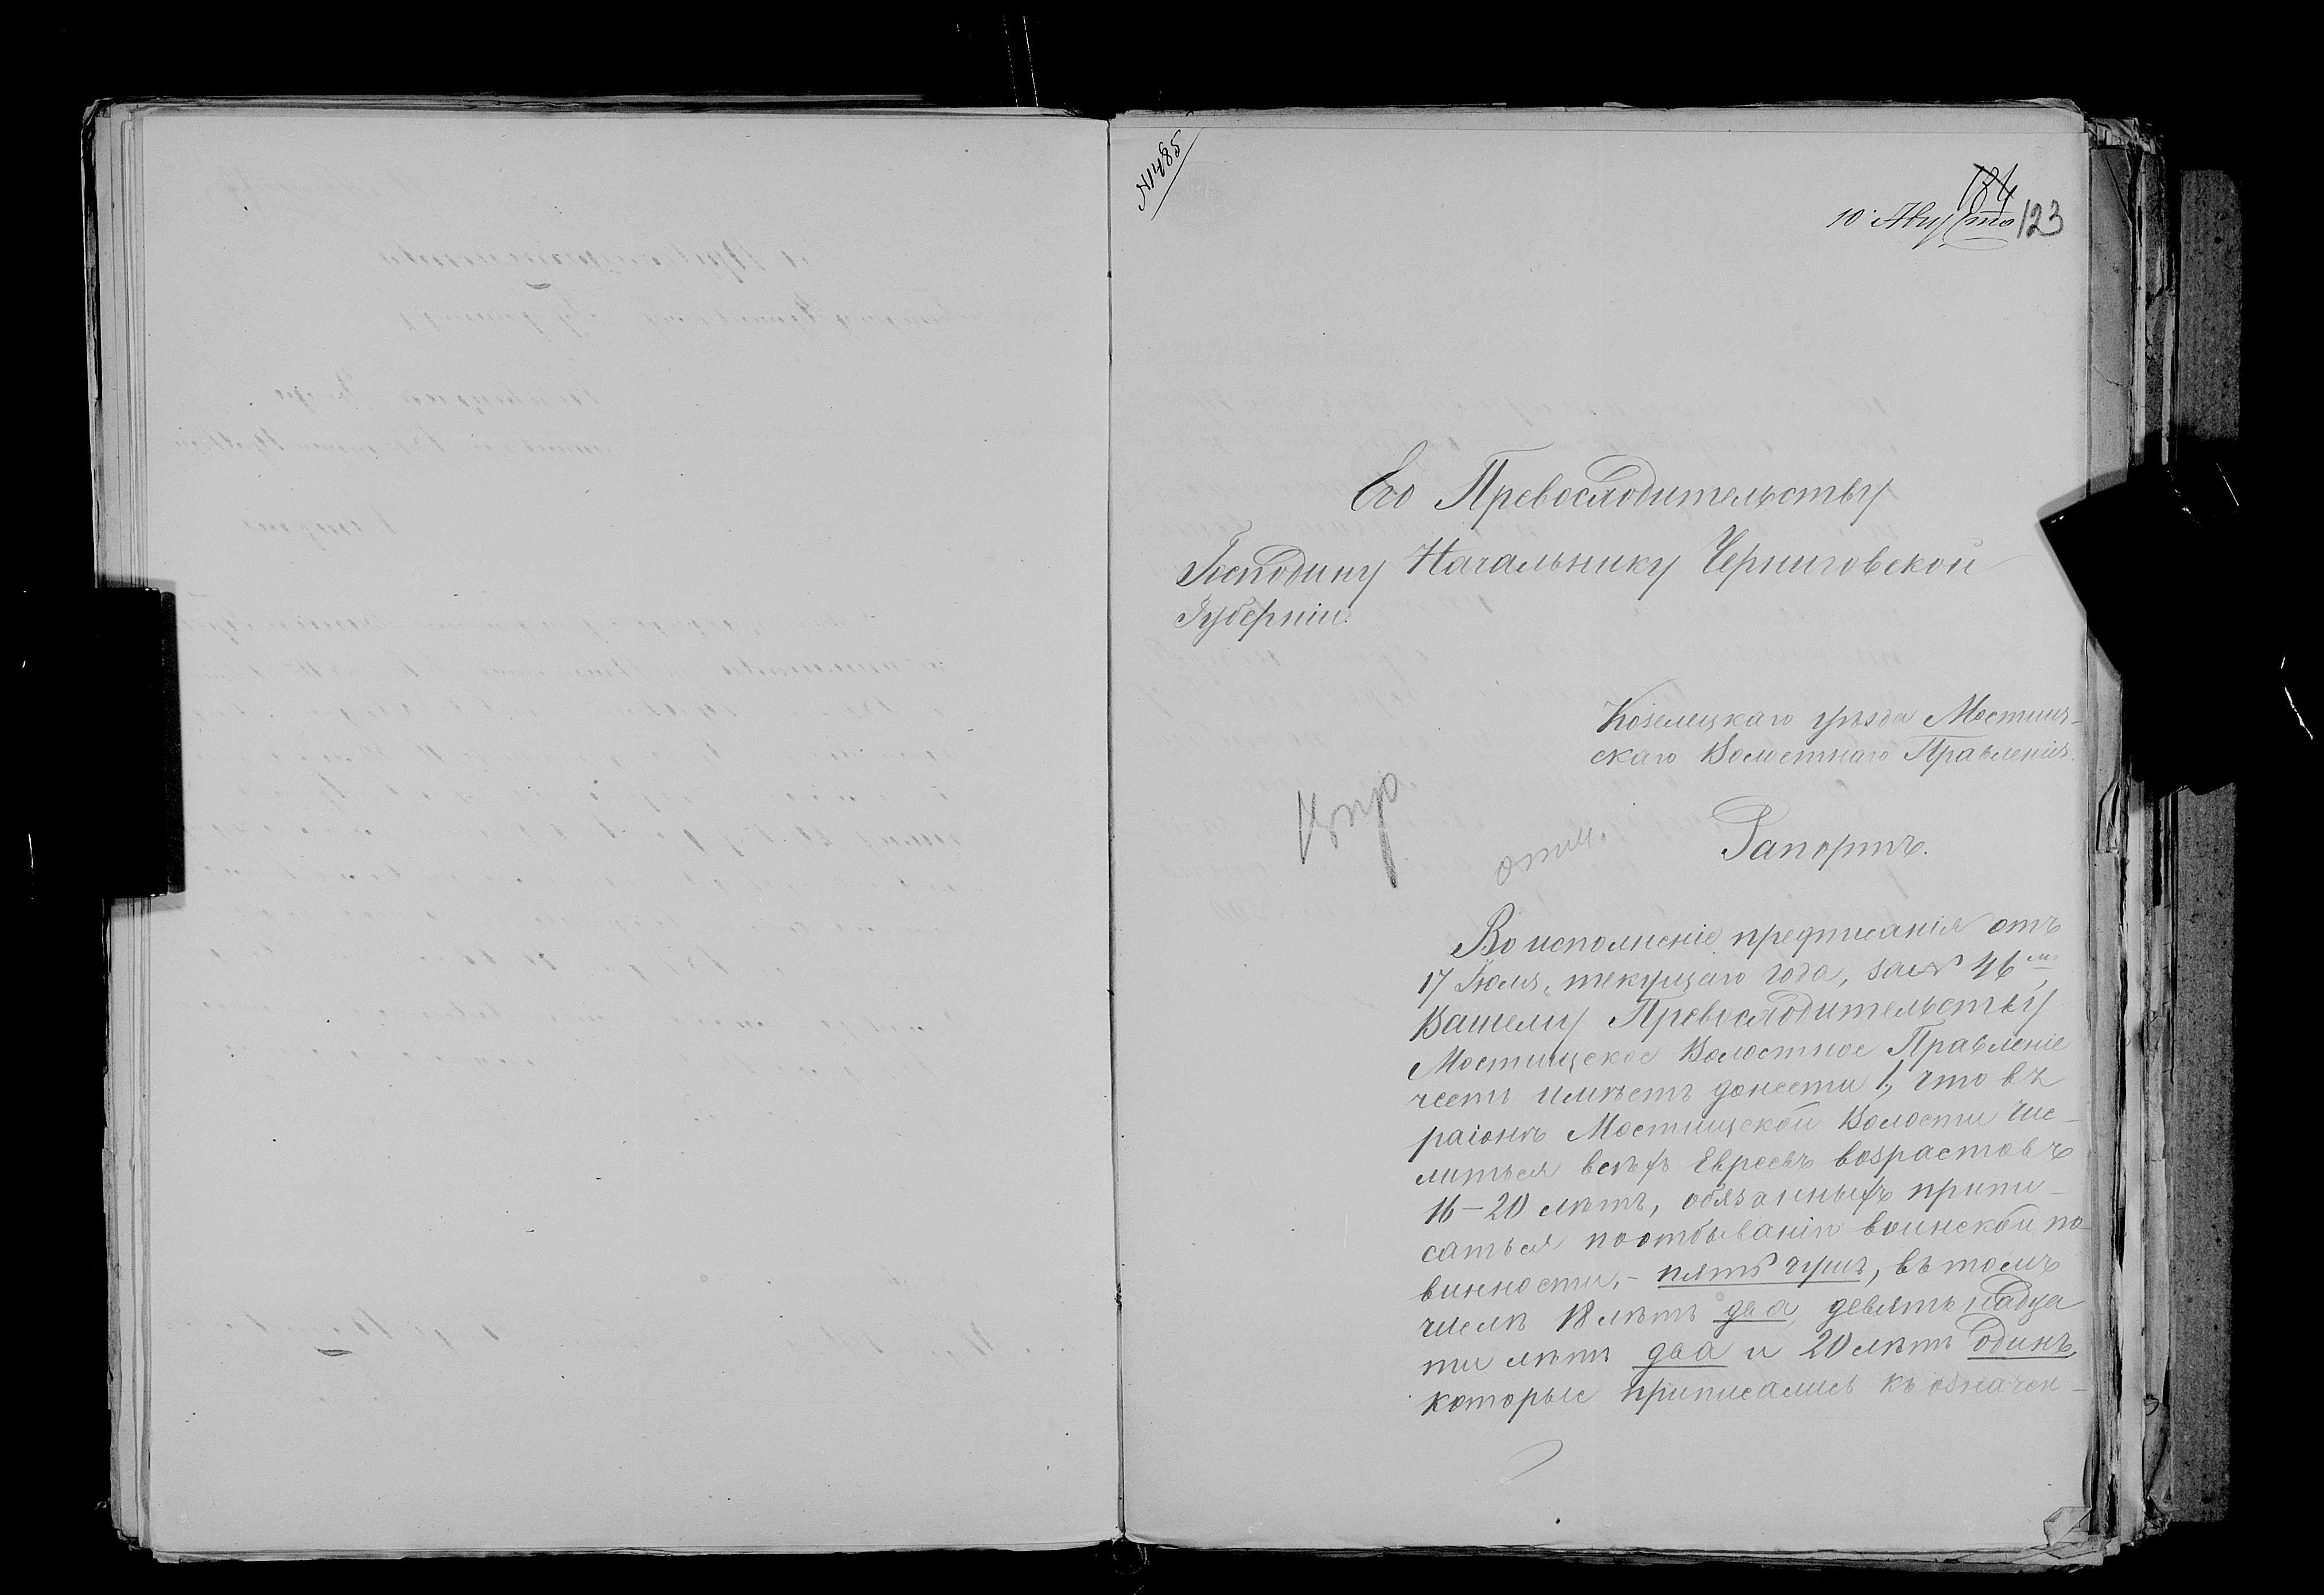 №1485
184
10 Августа 123
Его Превосходительству
Господину Начальнику Черниговской
Губерніи.
Козелецкаго уѣзда Мостищ-
скаго Волостнаго Правленія.
Рапортъ.
Во исполненіе предписанія отъ
17 Іюля, текущаго года, за № 46мъ,
Вашему Превосходительству
Мостищское Волостное Правленіе
честь имѣетъ донести 1, что въ
раіонѣ Мостищской Волости чис-
литься всѣхъ Евреевъ возрастовъ
16-20 лѣтъ, обязанныхъ припи-
саться поотбыванію воинской по-
винности, - пять душъ, въ томъ
числѣ 18 лѣтъ два, девятьнадца
ти лѣтъ два и 20 лѣтъ одинъ,
которые приписались къ означен-